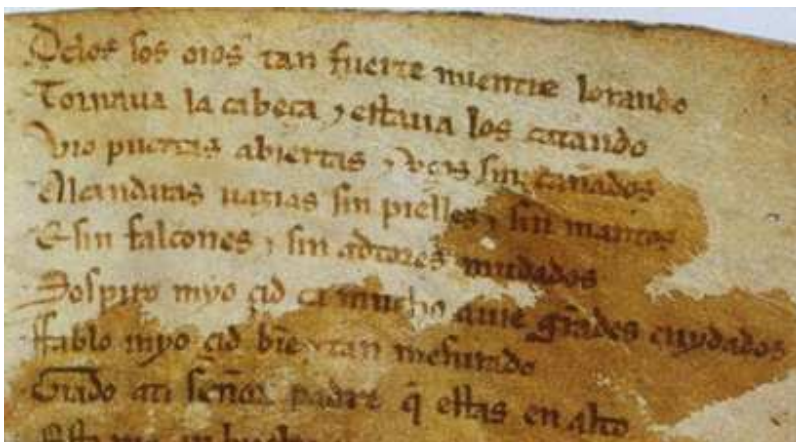 Delos sos oios tan fuerte mientre lorando
Tornaua la cabeça ⁊ estaua los catando
Vio puertas abiertas ⁊ vços sin cañados
Alcandaras uazias sin pielles ⁊ sin mantos
E sin falcones ⁊ sin adtores mudados
Sospiro myo çid ca mucho auie grãdes cuydados
Ffablo myo çid biẽ ⁊ tan mesurado
Grado ati señor padre q̃ estas en alto
Esto me